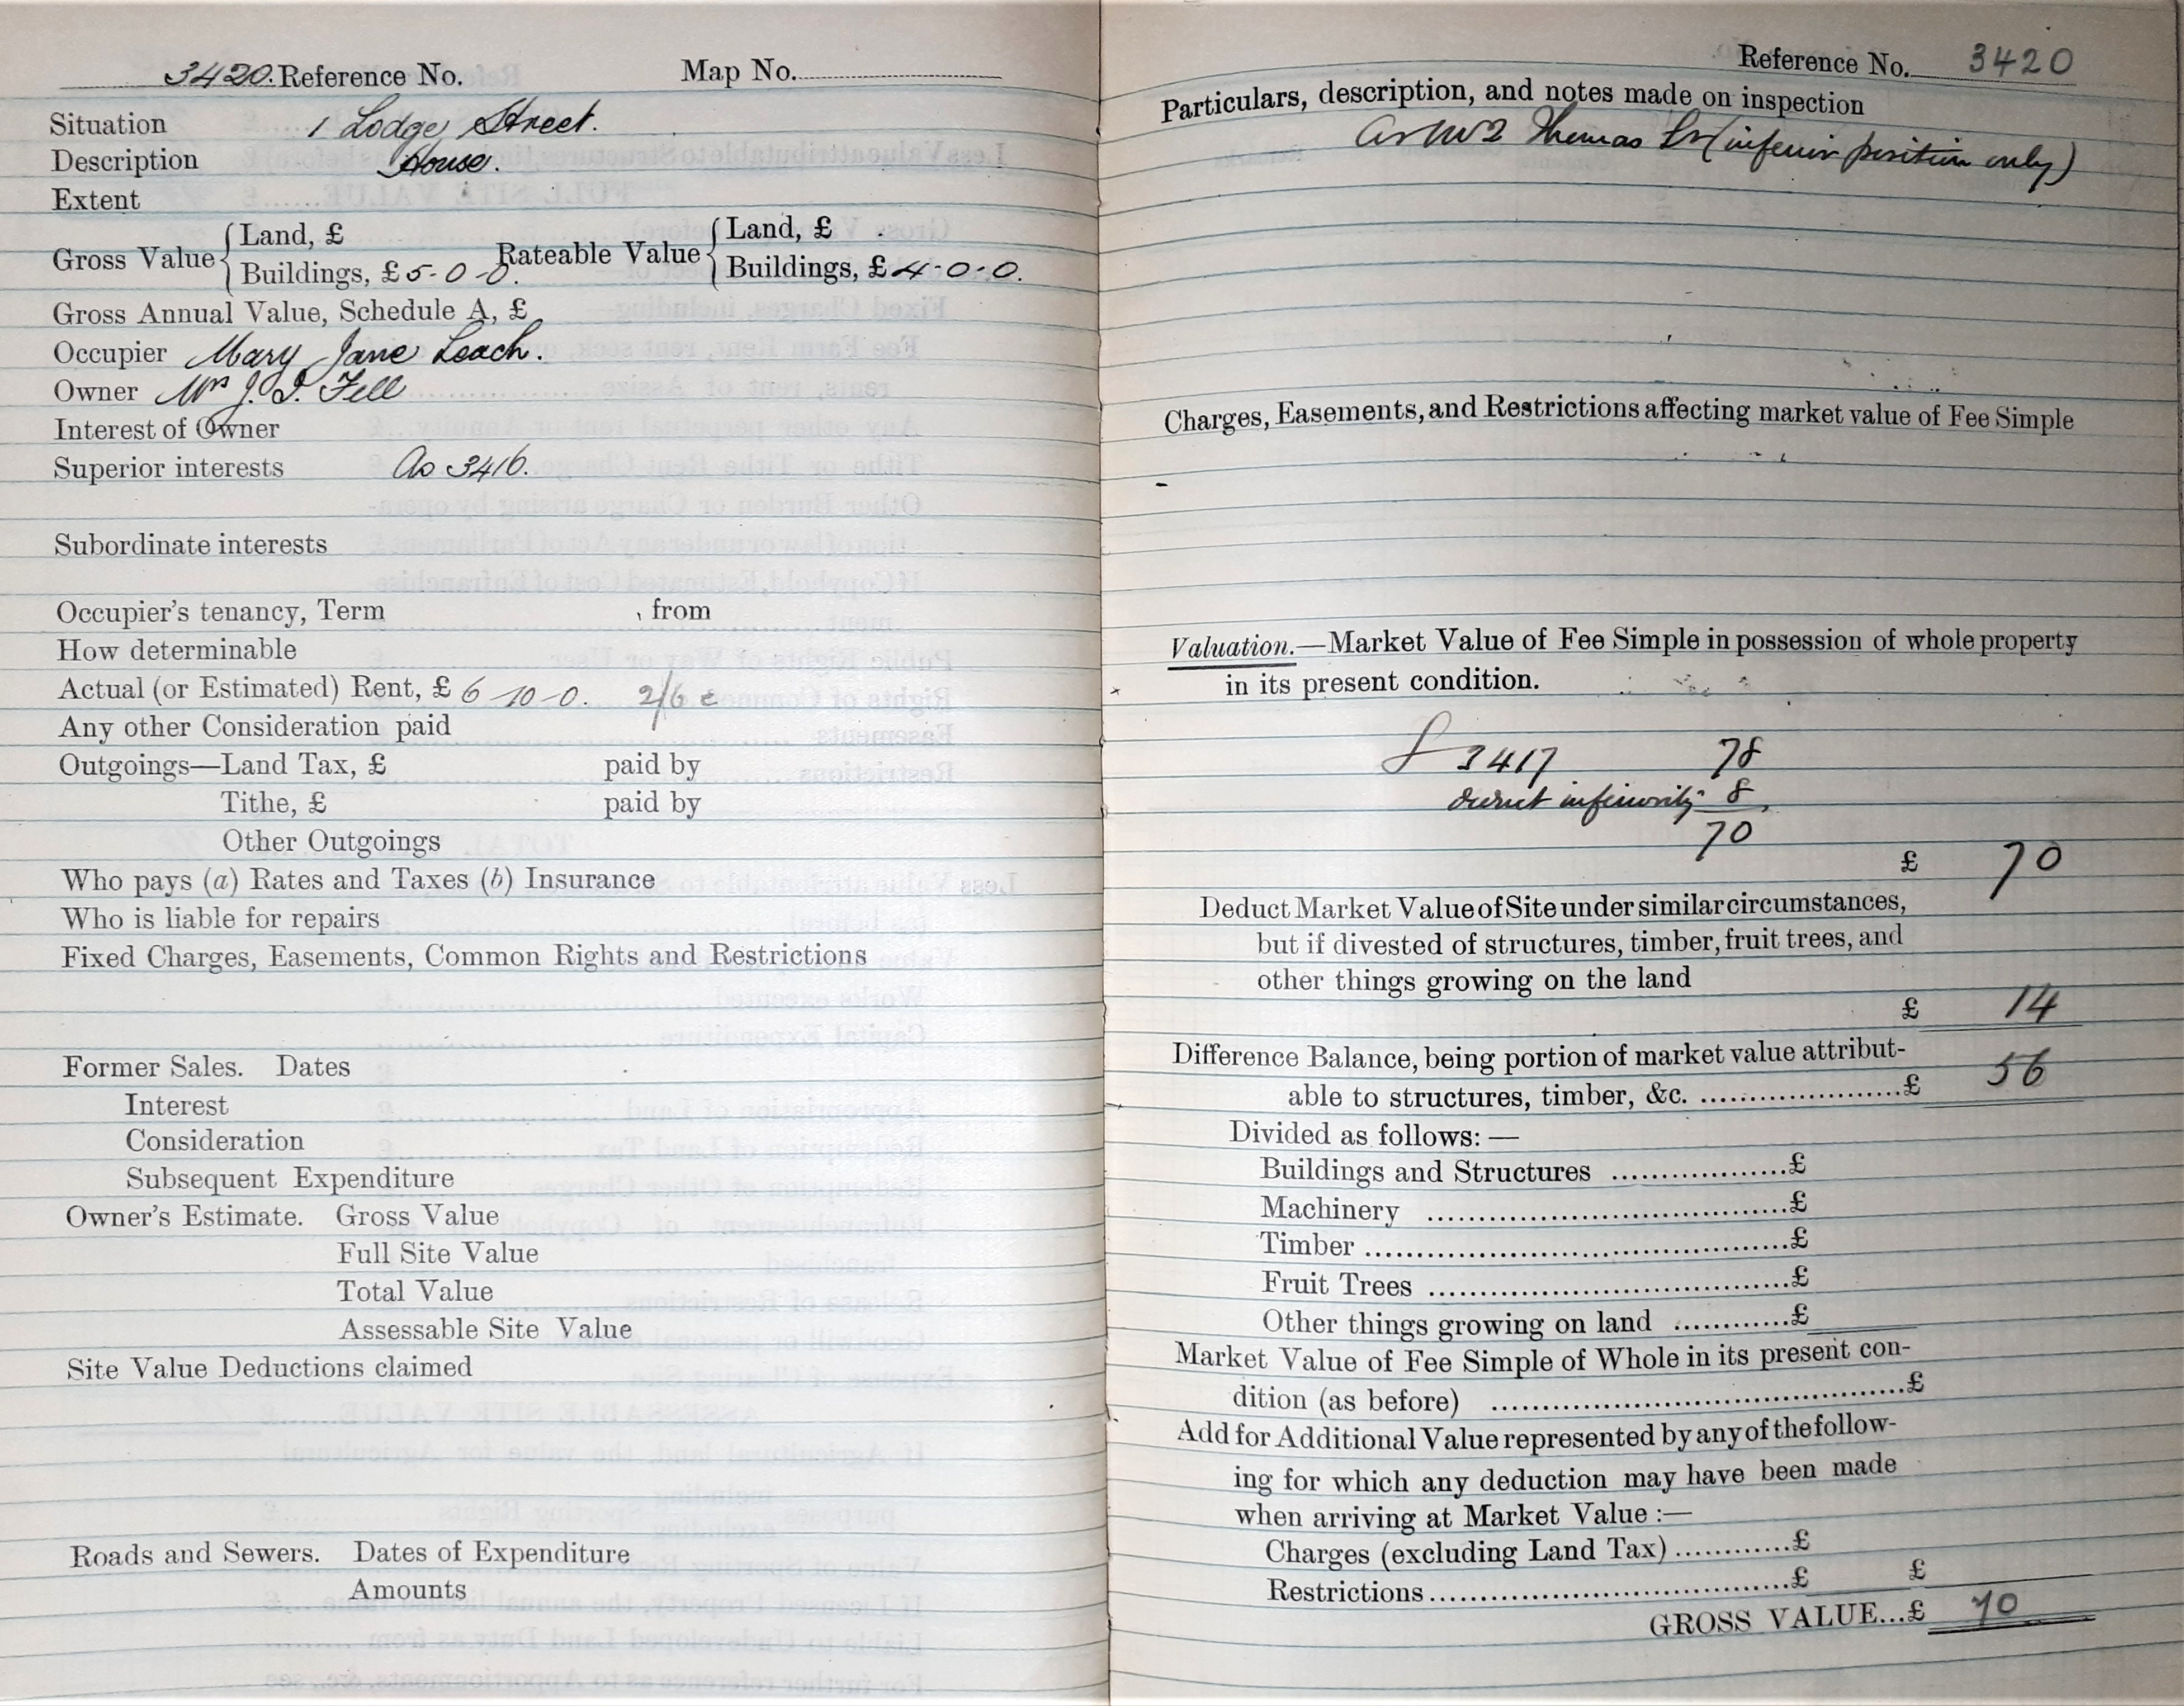 3420. Reference No. Map No.
Situation 1 Lodge Street.
Description House.
Extent
Gross Value { Land, £ Rateable Value { Land, £
Buildings, £ 5-0-0. Buildings, £ 4-0-0.
Gross Annual Value, Schedule A, £
Occupier Mary Jane Leach.
Owner Mrs J. I. Fell
Interest of Owner
Superior interests As 3416.
Subordinate interests
Occupier's tenancy, Term , from
How determinable
Actual (or Estimated) Rent, £ 6-10-0. 2/6
Any other Consideration paid
Outgoings—Land Tax, £ paid by
Tithe, £ paid by
Other Outgoings
Who pays (a) Rates and Taxes (b) Insurance
Who is liable for repairs
Fixed Charges, Easements, Common Rights and Restrictions
Former Sales. Dates
Interest
Consideration
Subsequent Expenditure
Owner's Estimate. Gross Value
Full Site Value
Total Value
Assessable Site Value
Site Value Deductions claimed
Roads and Sewers. Dates of Expenditure
Amounts
Reference No. 3420
Particulars, description, and notes made on inspection
as No 2 Thomas St (inferior position only)
Charges, Easements, and Restrictions affecting market value of Fee Simple
Valuation.—Market Value of Fee Simple in possession of whole property
in its present condition.
3417 78
deduct inferiority 8
70
£ 70
Deduct Market Value of Site under similar circumstances,
but if divested of structures, timber, fruit trees, and
other things growing on the land
£ 14
Difference Balance, being portion of market value attribut-
able to structures, timber, &c. ........£ 56
Divided as follows:—
Buildings and Structures ........£
Machinery ........£
Timber ........£
Fruit Trees ........£
Other things growing on land ........£
Market Value of Fee Simple of Whole in its present con-
dition (as before) ........£
Add for Additional Value represented by any of the follow-
ing for which any deduction may have been made
when arriving at Market Value :—
Charges (excluding Land Tax) ........£
Restrictions ........£ £
GROSS VALUE...£ 70